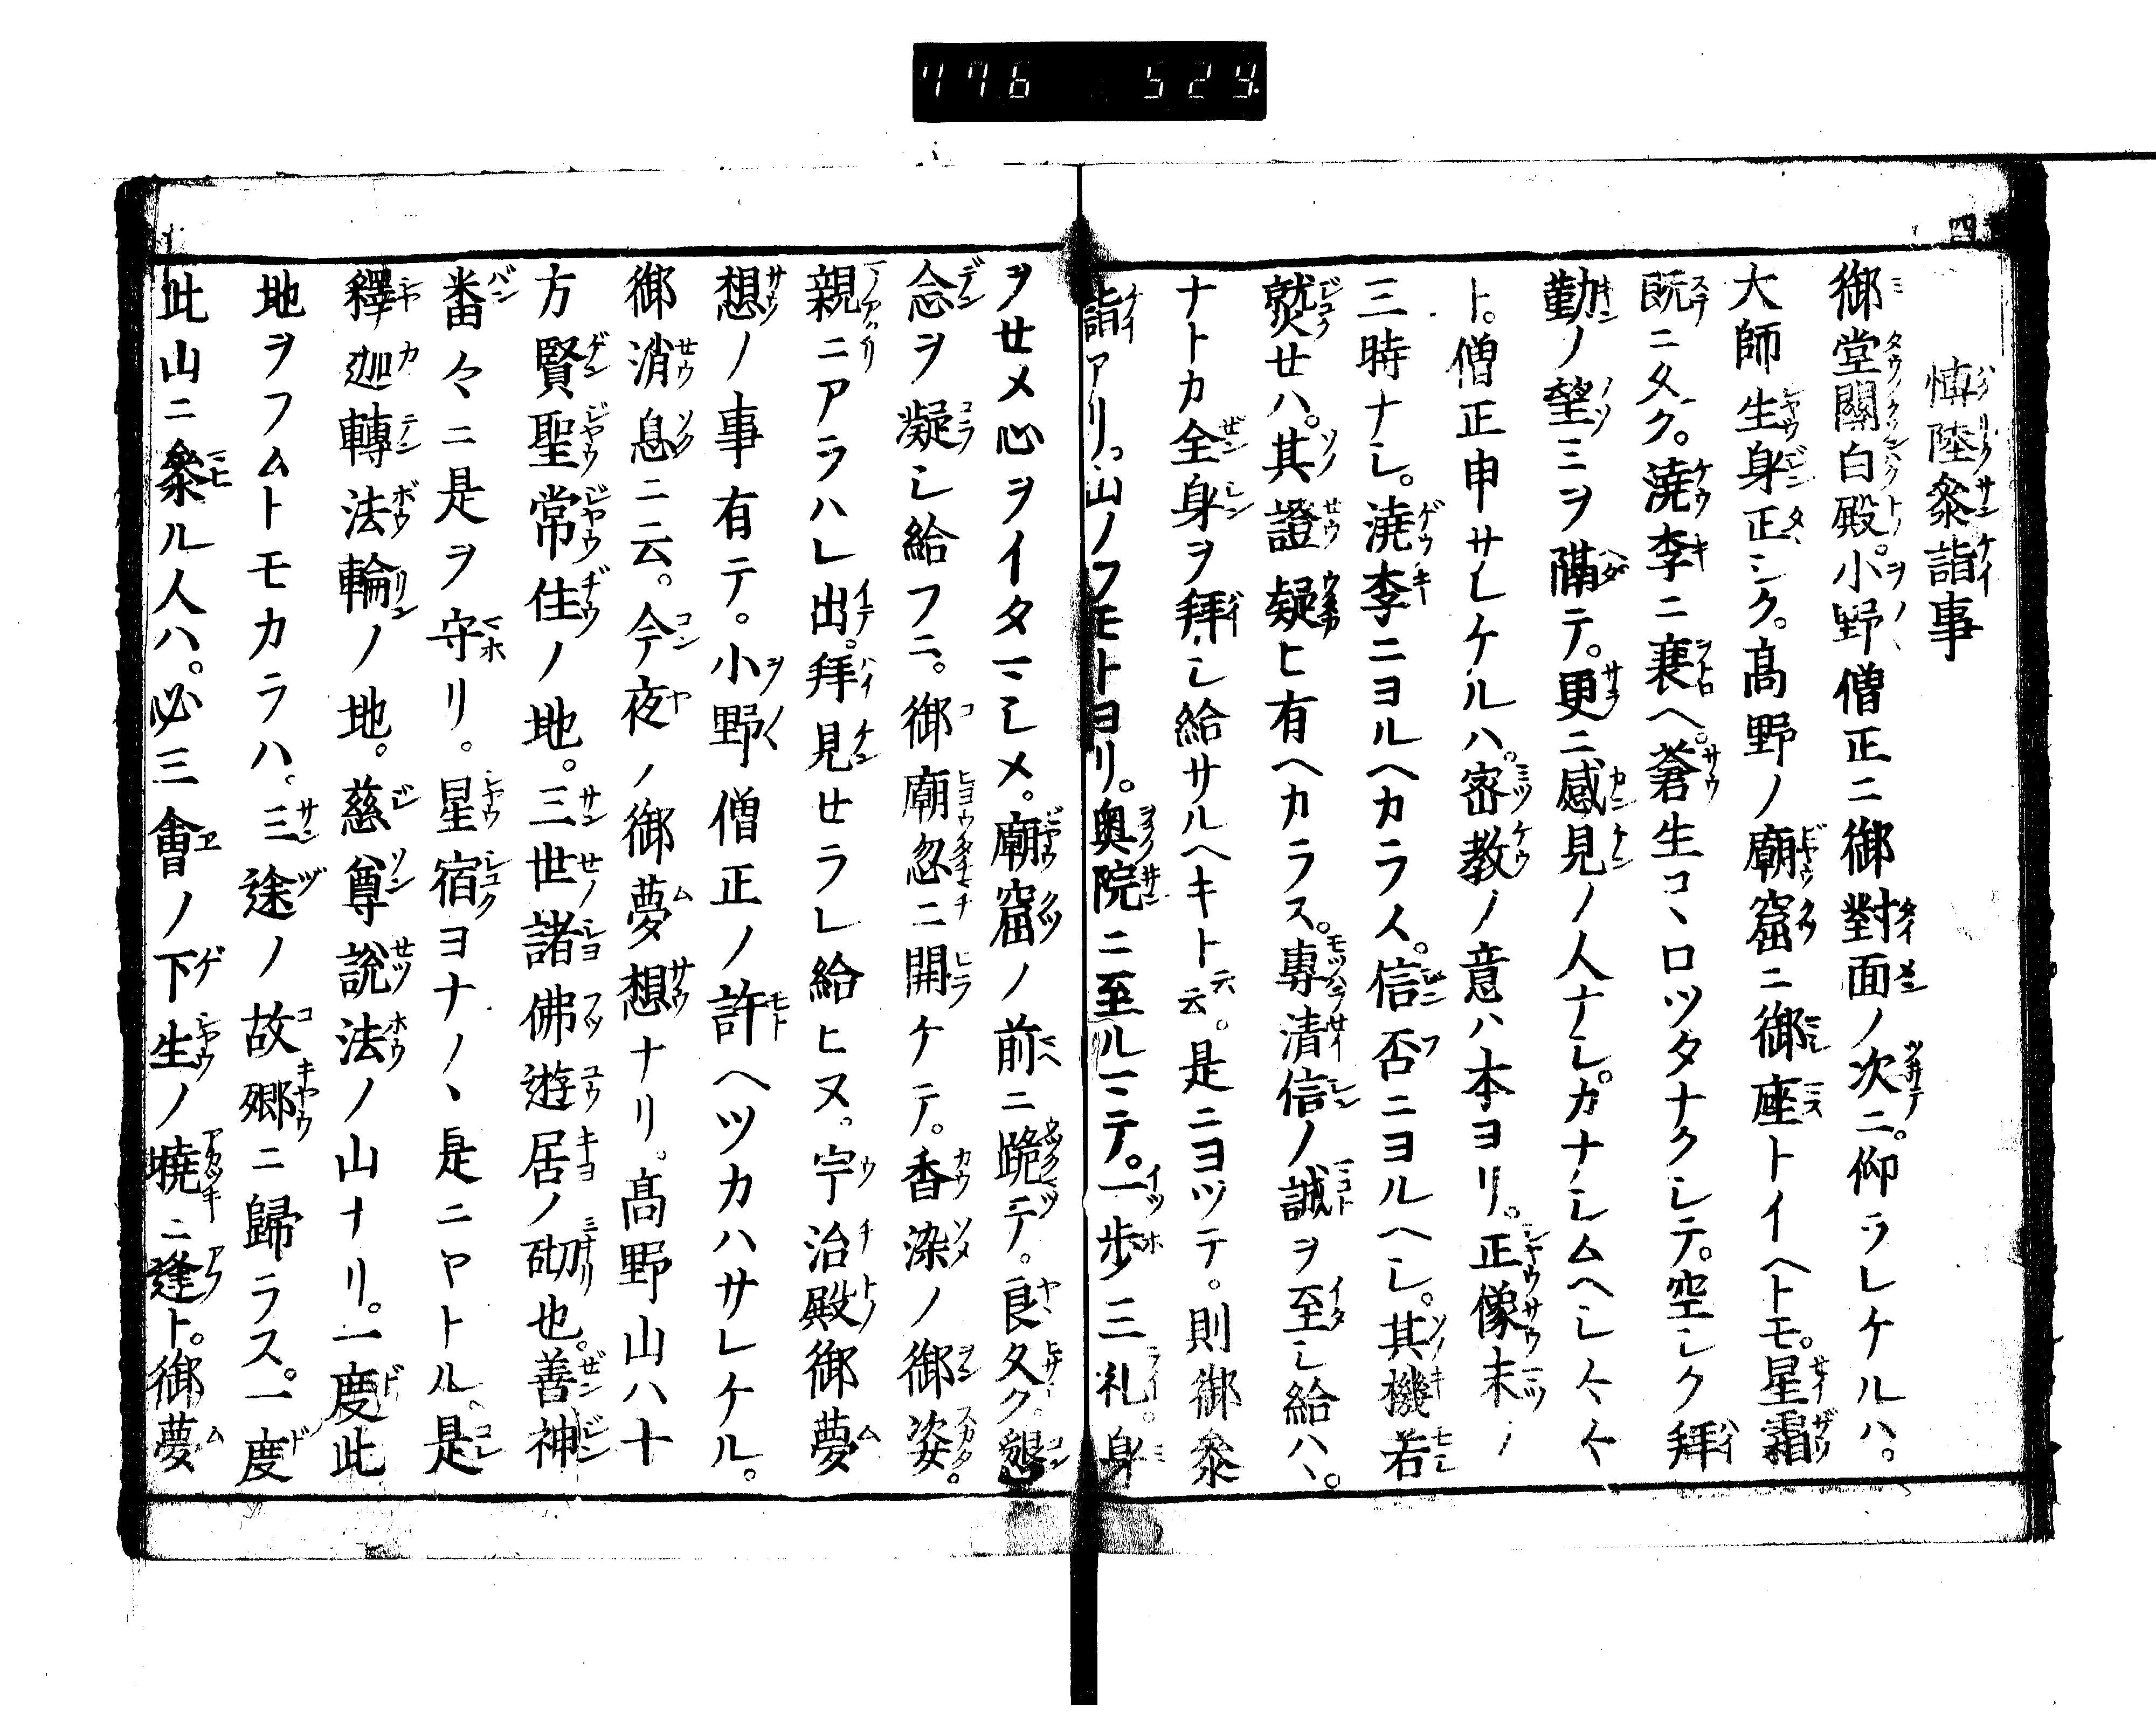 776 529.
四
愽陸叅詣事
御堂關白殿。小野僧正ニ御對面ノ次ニ。仰ラレケルハ。
大師生身正シク。髙野ノ廟窟ニ御座トイヘトモ。星霜
既ニ久ク。澆季ニ衰ヘ。蒼生コヽロツタナクシテ。空シク拜
勤ノ望ミヲ隔テ。更ニ感見ノ人ナシ。カナシムヘシ〱
ト。僧正申サレケルハ。密教ノ意ハ本ヨリ。正像末ノ
三時ナシ。澆季ニヨルヘカラス。信否ニヨルヘシ。其機若
熟セハ。其證疑ヒ有ヘカラス。專清信ノ誠ヲ至シ給ハヽ。
ナトカ全身ヲ拜シ給サルヘキト云云。是ニヨツテ。則御叅
詣アリ。山ノフモトヨリ。奥院ニ至ルマテ。一歩三礼。身
ヲせメ心ヲイタマシメ。廟窟ノ前ニ跪テ。良久ク。懇
念ヲ凝シ給フニ。御廟忽ニ開ケテ。香染ノ御姿。
親ニアラハレ出。拜見せラレ給ヒヌ。宇治殿御夢
想ノ事有テ。小野僧正ノ許ヘツカハサレケル。
御消息ニ云。今夜ノ御夢想ナリ。髙野山ハ十
方賢聖常住ノ地。三世諸佛遊居ノ砌也。善神
番々ニ是ヲ守リ。星宿ヨナノヽ是ニヤトル。是
釋迦轉法輪ノ地。慈尊説法ノ山ナリ。一度此
地ヲフムトモカラハ。三途ノ故郷ニ歸ラス。一度
此山ニ叅ル人ハ。必三會ノ下生ノ曉ニ逢ト。御夢